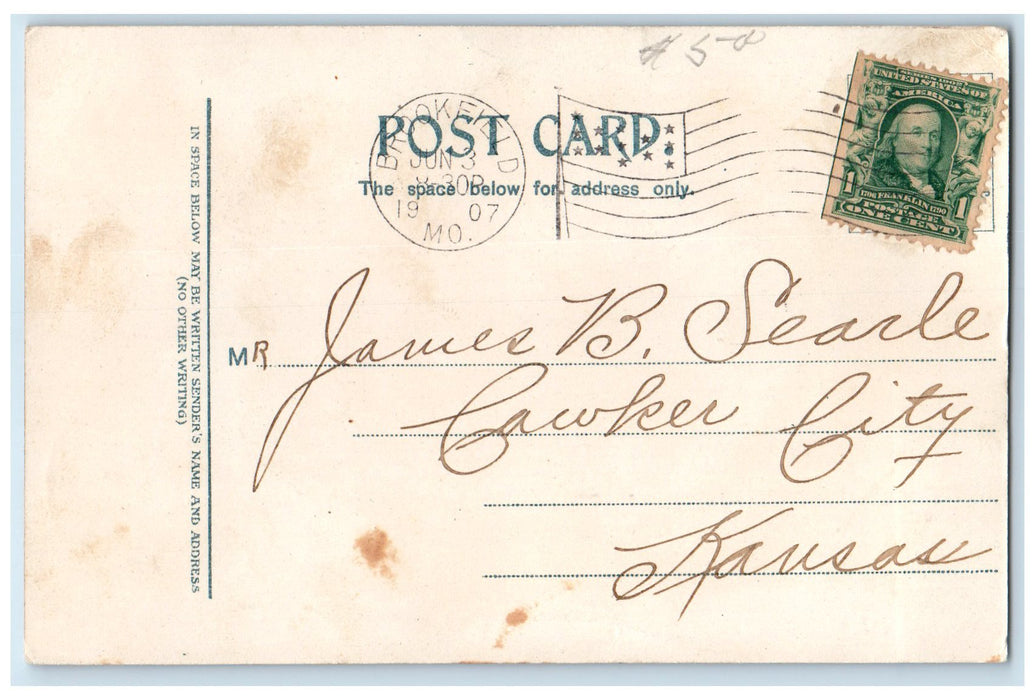 #50
POST CARD.
The space below for address only.
BROOKFIELD
JUN 3
8-30P
19 07
MO.
SERIES 1902
UNITED STATES OF
AMERICA
1 1
1706 FRANKLIN 1790
POSTAGE
ONE CENT
IN SPACE BELOW MAY BE WRITTEN SENDER'S NAME AND ADDRESS
(NO OTHER WRITING)
MR James B. Searle
Cawker City
Kansas